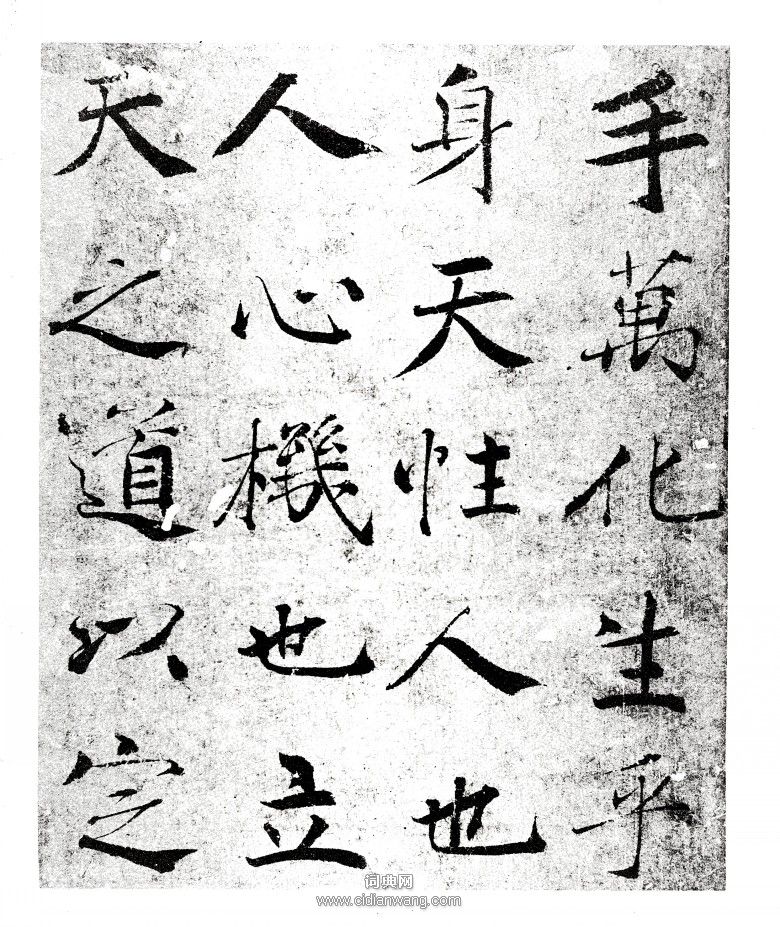 手萬化生乎
身天性人也
人心機也立
天之道以定
词典网
www.cidianwang.com